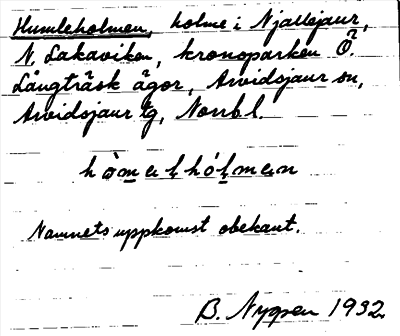 Humleholmen, holme i Njallejaur,
N. Lakaviken, kronoparken Ö.
Långträsk ägor, Arvidsjaur sn,
Arvidsjaur tg, Norrb l.
hòmelhólmen
Namnets uppkomst obekant.
B. Nygren 1932